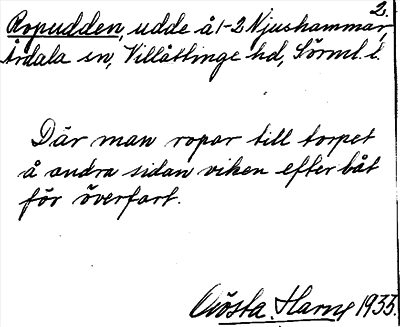 2.
Ropudden, udde å 1-2 Njushammar,
Årdala sn, Villåttinge hd, Sörml. l.
Där man ropar till torpet
å andra sidan viken efter båt
för överfart.
Gösta Harne 1935.